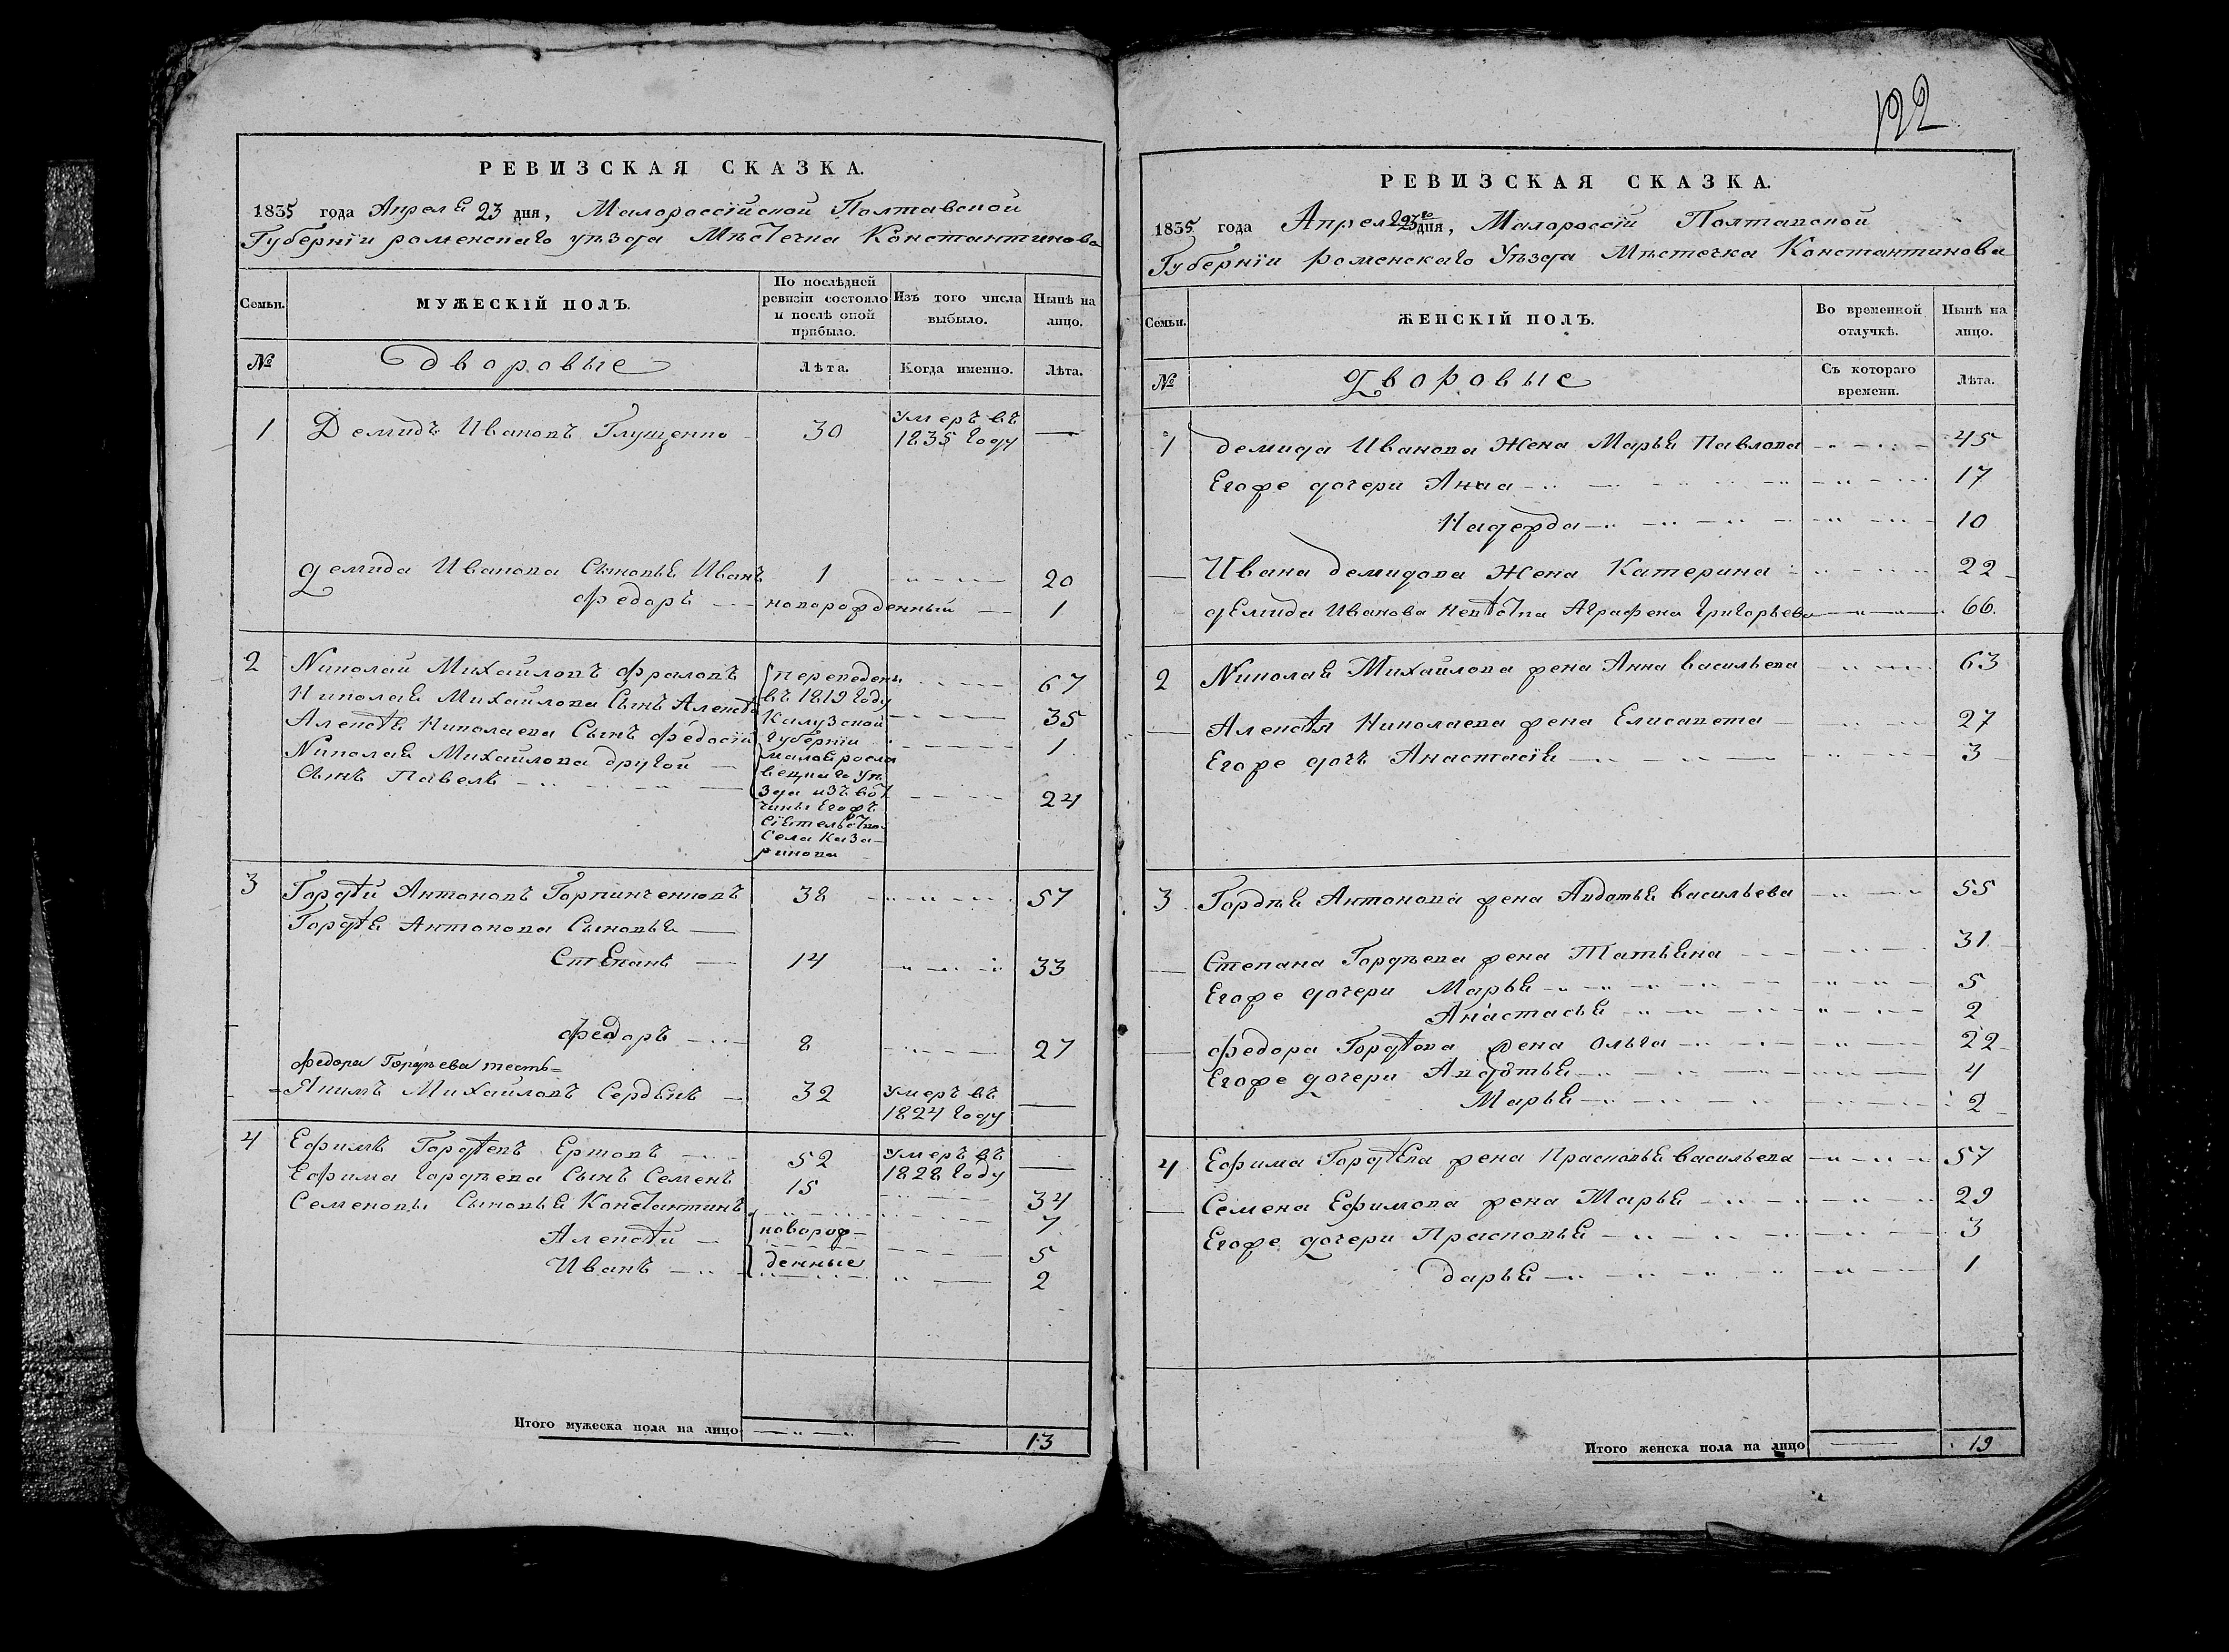 122
РЕВИЗСКАЯ СКАЗКА.
1835 года Апреля 23 дня, Малороссійской Полтавской
Губерніи роменскаго уѣзда Мѣстечка Константинова
Семьи.
МУЖЕСКІЙ ПОЛЪ.
По послѣдней ревизіи состояло и послѣ оной прибыло.
Изъ того числа выбыло.
Нынѣ на лицо.
№
Дворовые
Лѣта.
Когда именно.
Лѣта.
1 Демидъ Ивановъ Глущенко 30 умеръ въ 1835 году —
Демида Иванова Сыновья Иванъ 1 20
Федоръ новорожденный 1
2 Николай Михайловъ Фраловъ 67
Николая Михайлова Сынъ Алексѣй 35
Алексѣя Николаева Сынъ Федосій 1
Николая Михайлова другой
Сынъ Павелъ 24
переведены
въ 1819 году
Калузской
Губерніи
малояросла
вецкаго уѣ
зда изъ вот
чины Егожъ
сіятельства
Села Каза-
ринова
3 Гордѣй Антоновъ Горпинченковъ 38 57
Гордѣя Антонова Сыновья
Степанъ 14 33
Федоръ 8 27
Федора Гордѣева тесть
Якимъ Михайловъ Сердѣкъ 32 умеръ въ 1824 году —
4 Ефимъ Гордѣевъ Ершовъ 52 умеръ въ 1828 году —
Ефима Гордѣева Сынъ Семенъ 15 34
Семеновы Сыновья Константинъ 7
Алексѣй новорож- 5
Иванъ денные 2
Итого мужеска пола на лицо 13
РЕВИЗСКАЯ СКАЗКА.
1835 года Апреля 23го дня, Малороссій Полтавской
Губерніи роменскаго Уѣзда Мѣстечка Константинова
Семьи.
ЖЕНСКІЙ ПОЛЪ.
Во временной отлучкѣ.
Нынѣ на лицо.
№
Дворовые
Съ котораго времени.
Лѣта.
1 Демида Иванова Жена Марья Павлова 45
Егоже дочери Анна 17
Надежда 10
Ивана Демидова Жена Катерина 22
Демида Иванова невѣстка Аграфена Григорьева 66
2 Николая Михайлова жена Анна Васильева 63
Алексѣя Николаева жена Елисавета 27
Егоже дочь Анастасія 3
3 Гордѣя Антонова жена Авдотья Васильева 55
Степана Гордѣева жена Татьяна 31
Егоже дочери Марья 5
Анастасья 2
Федора Гордѣева жена Ольга 22
Егоже дочери Авдотья 4
Марья 2
4 Ефима Гордѣева жена Прасковья Васильева 57
Семена Ефимова жена Марья 29
Егоже дочери Прасковья 3
Дарья 1
Итого женска пола на лицо 19